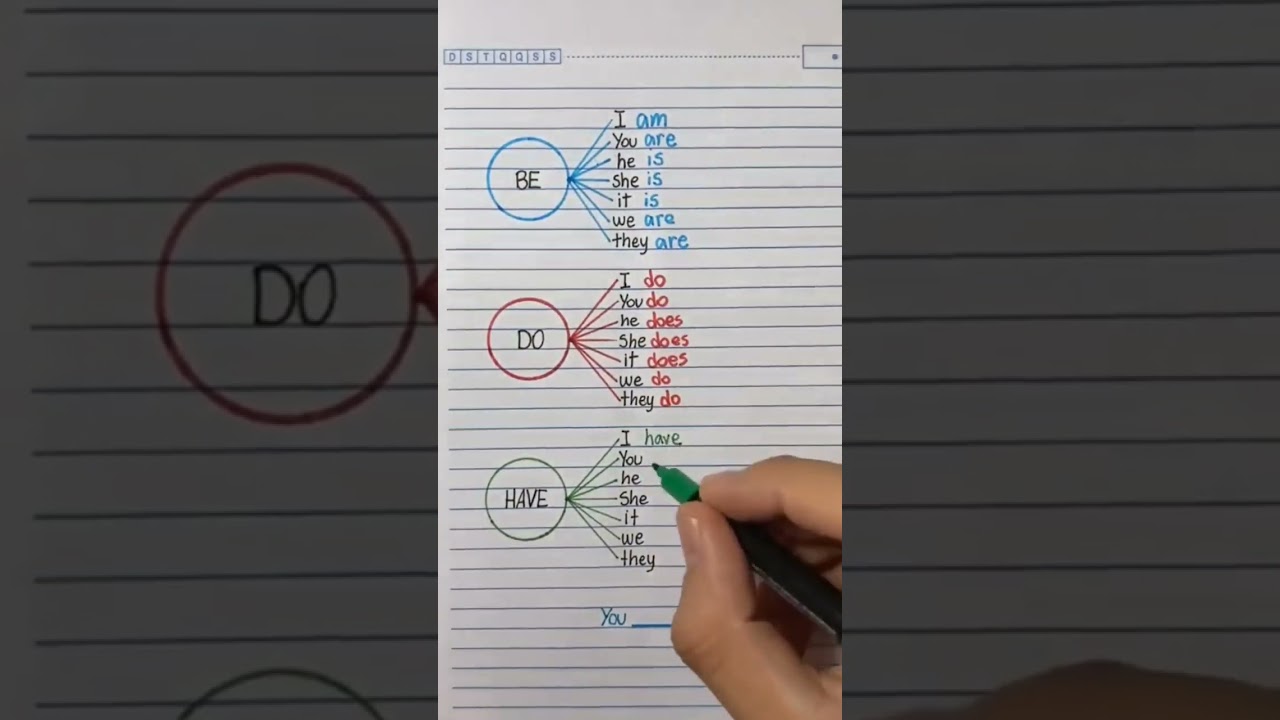 D S T Q Q S S
BE
I am
You are
he is
she is
it is
we are
they are
DO
DO
I do
You do
he does
She does
it does
we do
they do
HAVE
I have
You
he
She
it
we
they
You